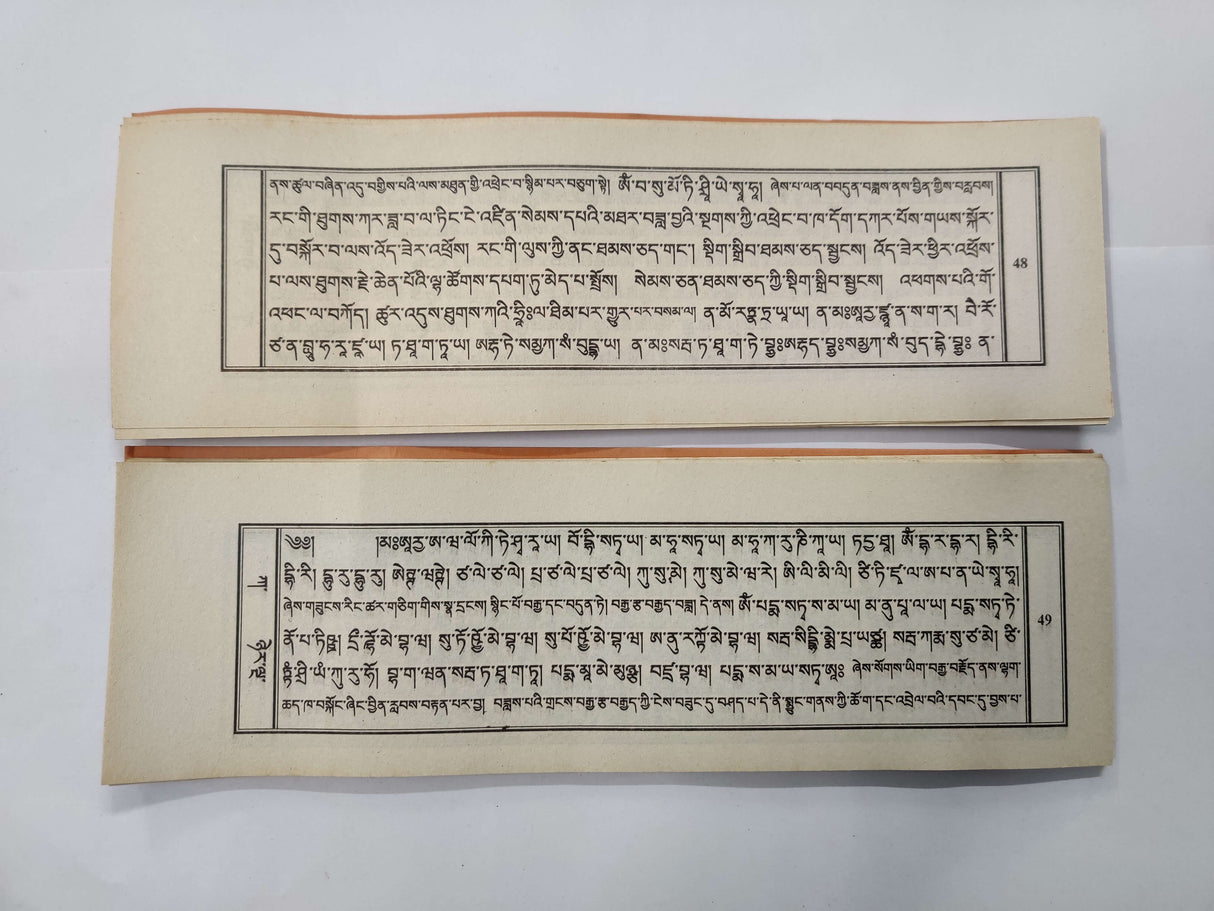 ནས་ཚུལ་བཞིན་འདུ་བགྱིས་པའི་ལས་མཐུན་གྱི་འཕྲེང་བ་སྙིམ་པར་བཅུག་སྟེ། ཨོཾ་བ་སུ་མོ་ཏི་ཤྲཱི་ཡེ་སྭཱ་ཧཱ། ཞེས་པ་ལན་བདུན་བཟླས་ནས་བྱིན་གྱིས་བརླབས།
རང་གི་ཐུགས་ཀར་ཟླ་བ་ལ་ཏིང་ངེ་འཛིན་སེམས་དཔའི་མཐར་བཟླ་བྱའི་སྔགས་ཀྱི་འཕྲེང་བ་ཁ་དོག་དཀར་པོས་གཡས་སྐོར་
དུ་བསྐོར་བ་ལས་འོད་ཟེར་འཕྲོས། རང་གི་ལུས་ཀྱི་ནང་ཐམས་ཅད་གང་། སྡིག་སྒྲིབ་ཐམས་ཅད་སྦྱངས། འོད་ཟེར་ཕྱིར་འཕྲོས་
པ་ལས་ཐུགས་རྗེ་ཆེན་པོའི་ལྷ་ཚོགས་དཔག་ཏུ་མེད་པ་སྤྲོས། སེམས་ཅན་ཐམས་ཅད་ཀྱི་སྡིག་སྒྲིབ་སྦྱངས། འཕགས་པའི་གོ་
འཕང་ལ་བཀོད། ཚུར་འདུས་ཐུགས་ཀའི་ཧྲཱིཿལ་ཐིམ་པར་གྱུར་པར་བསམ་ལ། ན་མོ་རཏྣ་ཏྲ་ཡཱ་ཡ། ན་མཿཨཱརྱ་ཛྙཱ་ན་སཱ་ག་ར། བཻ་རོ་
ཙ་ན་བྱཱུ་ཧ་རཱ་ཛཱ་ཡ། ཏ་ཐཱ་ག་ཏཱ་ཡ། ཨརྷ་ཏེ་སམྱཀ་སཾ་བུདྡྷ་ཡ། ན་མཿསརྦ་ཏ་ཐཱ་ག་ཏེ་བྷྱཿཨརྷད་བྷྱཿསམྱཀ་སཾ་བུད་དྷེ་བྷྱཿ ན་
48
༄༅། །མཿཨཱརྱ་ཨ་ཝ་ལོ་ཀི་ཏེ་ཤྭ་རཱ་ཡ། བོ་དྷི་སཏྭཱ་ཡ། མ་ཧཱ་སཏྭཱ་ཡ། མ་ཧཱ་ཀཱ་རུ་ཎི་ཀཱ་ཡ། ཏདྱ་ཐཱ། ཨོཾ་དྷ་ར་དྷ་ར། དྷི་རི་
དྷི་རི། དྷུ་རུ་དྷུ་རུ། ཨི་ཊྚེ་ཝཊྚེ། ཙ་ལེ་ཙ་ལེ། པྲ་ཙ་ལེ་པྲ་ཙ་ལེ། ཀུ་སུ་མེ། ཀུ་སུ་མེ་ཝ་རེ། ཨི་ལི་མི་ལི། ཙི་ཏི་ཛྭ་ལ་ཨ་པ་ན་ཡེ་སྭཱ་ཧཱ།
ཞེས་གཟུངས་རིང་ཚར་གཅིག་གིས་སྣ་དྲངས། སྙིང་པོ་བརྒྱ་དང་བདུན་ཏེ། བརྒྱ་རྩ་བརྒྱད་བཟླ། དེ་ནས། ཨོཾ་པདྨ་སཏྭ་ས་མ་ཡ། མ་ནུ་པཱ་ལ་ཡ། པདྨ་སཏྭ་ཏེ་
ནོ་པ་ཏིཥྛ། དྲྀ་ཌྷོ་མེ་བྷ་ཝ། སུ་ཏོ་ཥྱོ་མེ་བྷ་ཝ། སུ་པོ་ཥྱོ་མེ་བྷ་ཝ། ཨ་ནུ་རཀྟོ་མེ་བྷ་ཝ། སརྦ་སིདྡྷི་མྨེ་པྲ་ཡཙྪ། སརྦ་ཀརྨ་སུ་ཙ་མེ། ཙི་
ཏྟཾ་ཤྲི་ཡཾ་ཀུ་རུ་ཧོ། བྷ་ག་ཝན་སརྦ་ཏ་ཐཱ་ག་ཏཱ། པདྨ་མཱ་མེ་མུཉྩ། བཛྲ་བྷ་ཝ། པདྨ་ས་མ་ཡ་སཏྭ་ཨཱཿ ཞེས་སོགས་ཡིག་བརྒྱ་བརྗོད་ནས་ལྷག་
ཆད་ཁ་བསྐོང་ཞིང་བྱིན་རླབས་བརྟན་པར་བྱ། བཟླས་པའི་གྲངས་བརྒྱ་རྩ་བརྒྱད་ཀྱི་ངེས་བཟུང་དུ་བཤད་པ་དེ་ནི་སྨྱུང་གནས་ཀྱི་ཆོ་ག་དང་འབྲེལ་བའི་དབང་དུ་བྱས་པ་
49